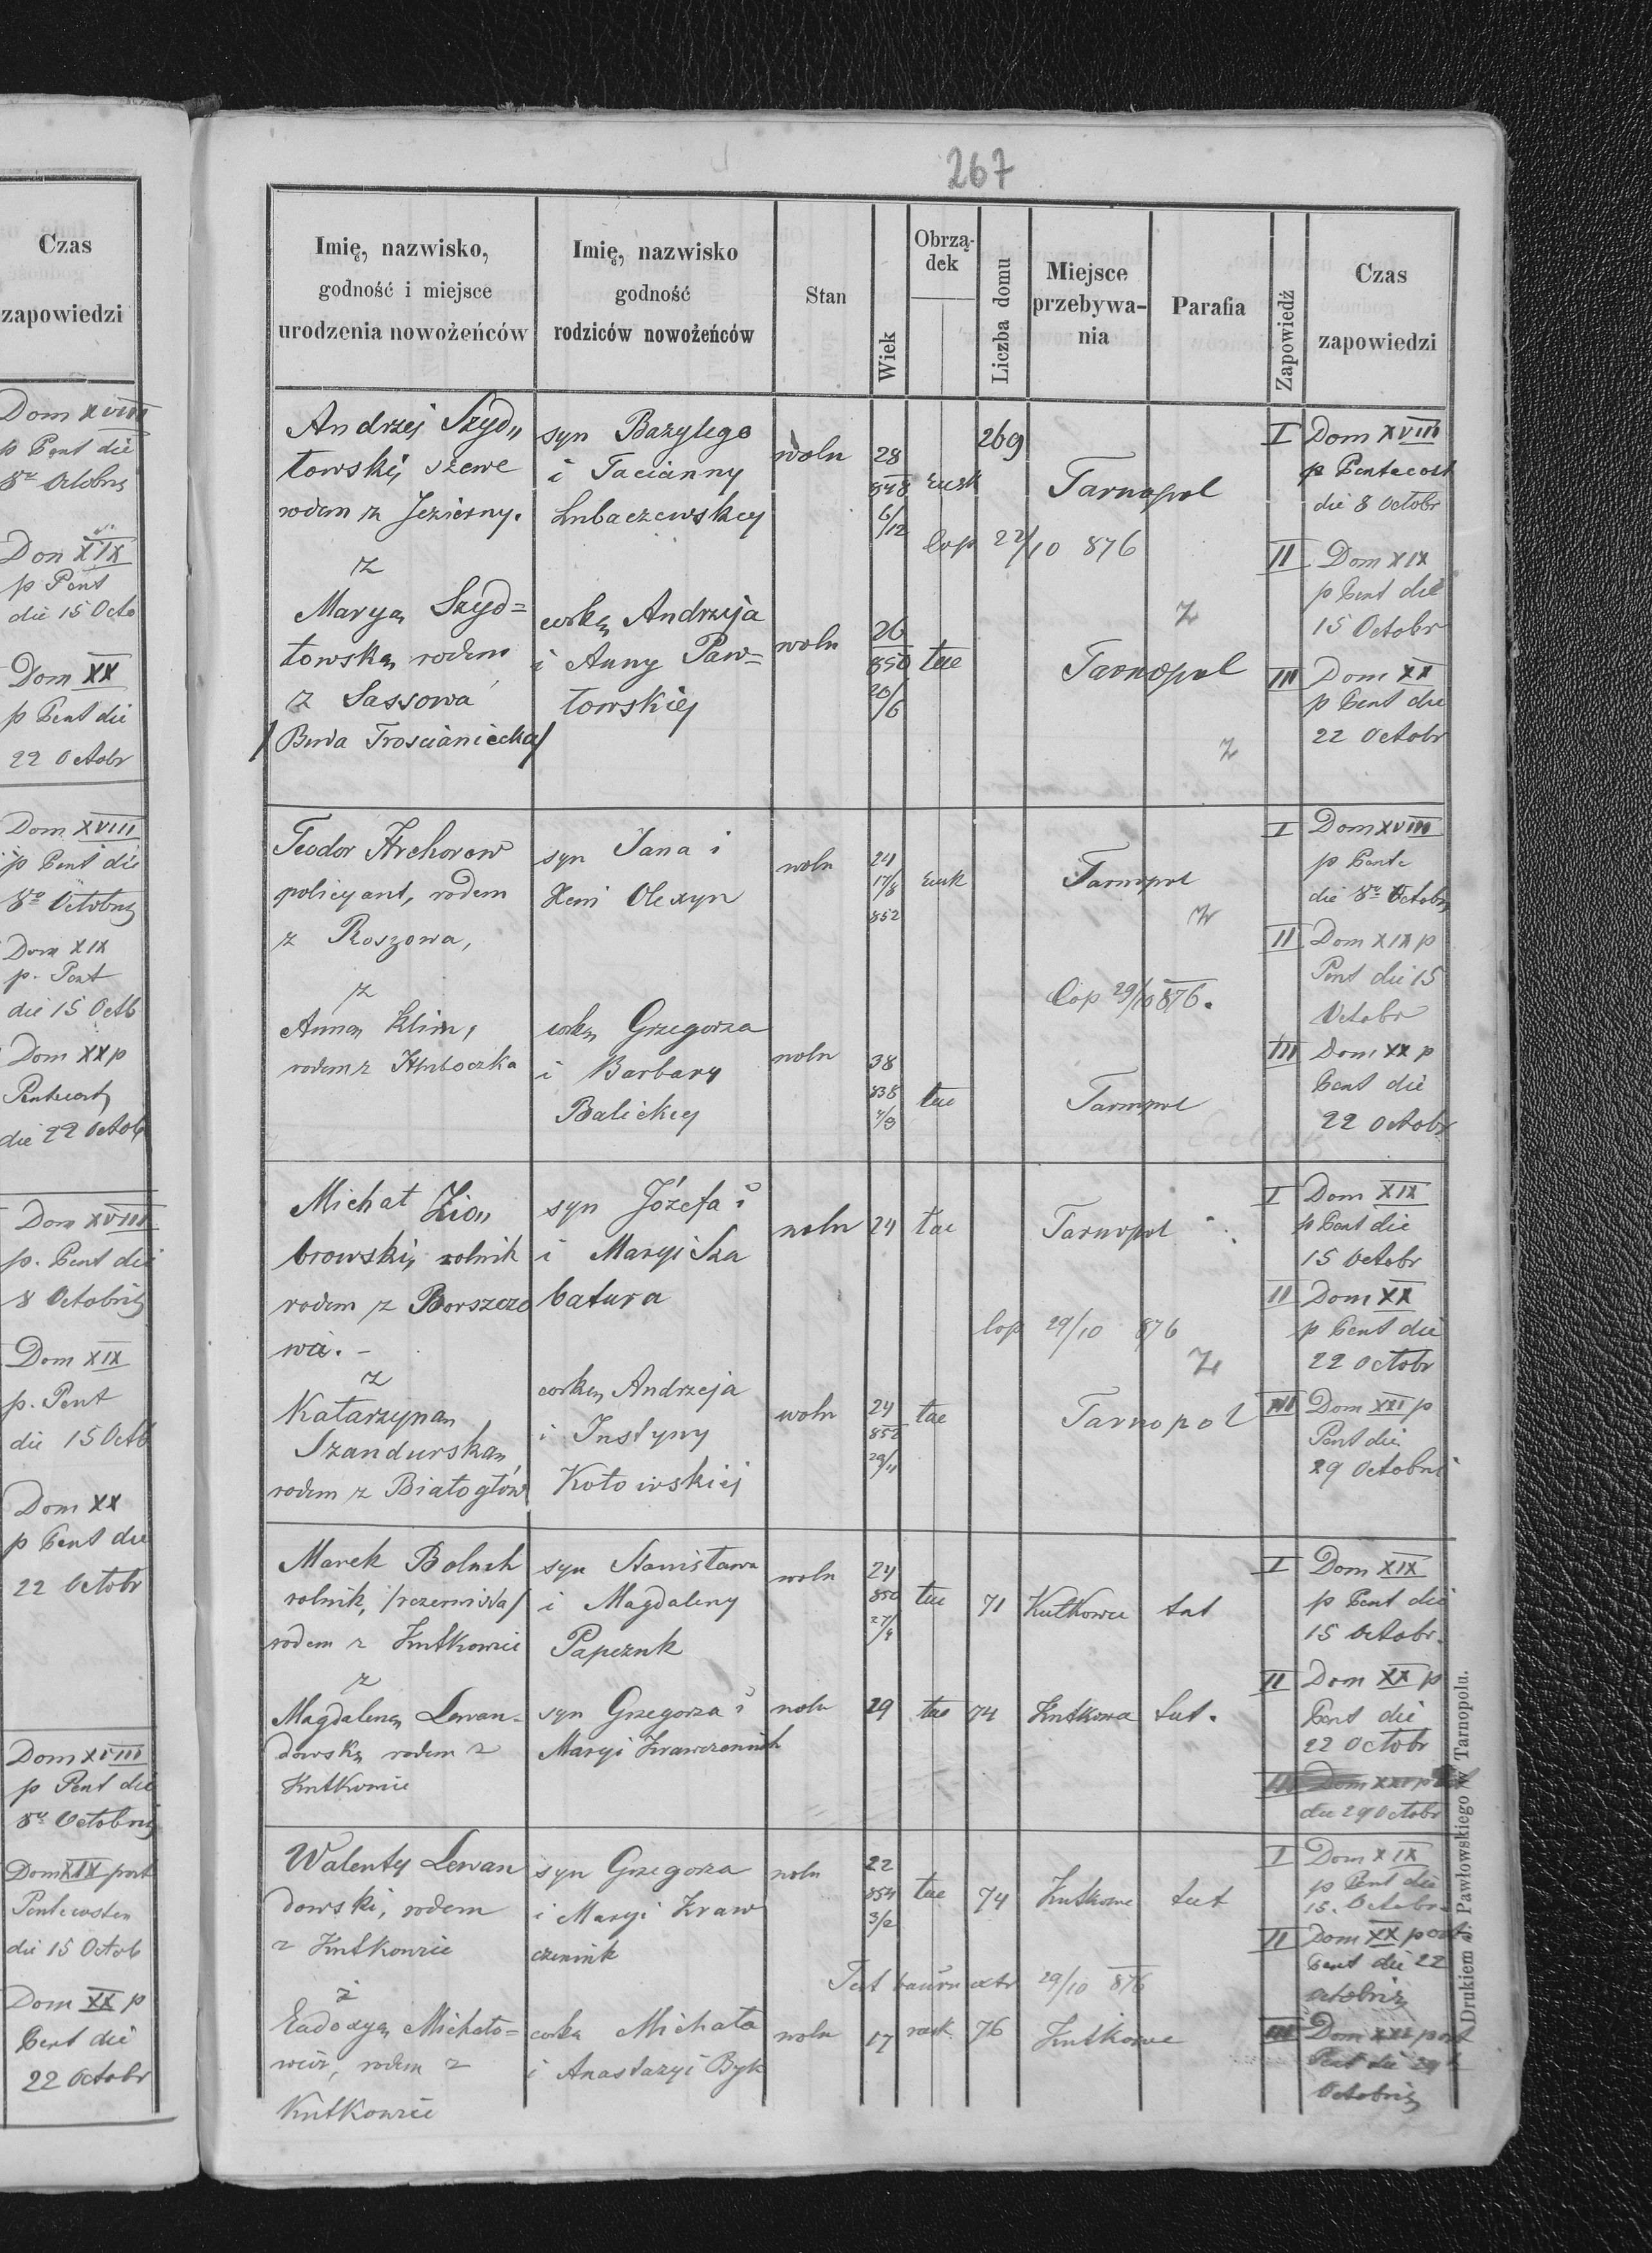 Czas
zapowiedzi
Dom XVIII
p Pent die
8va Octobris
Dom XIX
p Pent
die 15 Octo
Dom XX
p Pent die
22 Octobr
Dom XVIII
p Pent die
8va Octobris
Dom XIX
p. Pent
die 15 Octb
Dom XX p
Pentecost
die 22 Octob
Dom XVIII
p. Pent die
8 Octobris
Dom XIX
p. Pent
die 15 Octb
Dom XX
p Pent die
22 Octobr
Dom XVIII
p Pent die
8va Octobris
Dom XIX post
Pentecosten
die 15 Octob
Dom XX p
Pent die
22 Octobr
267
Imię, nazwisko,
godność i miejsce
urodzenia nowożeńców
Imię, nazwisko
godność
rodziców nowożeńców
Stan
Wiek
Obrzą-
dek
Liczba domu
Miejsce
przebywa-
nia
Parafia
Zapowiedź
Czas
zapowiedzi
Andrzej Szyd„
łowski, szewc
rodem z Jezierny.
z
Maryą Szyd=
łowską rodem
z Sassowa
/Burda Trościaniecka/
syn Bazylego
i Tacianny
Lubaczewskey
corką Andrzeja
i Anny Paw=
łowskiej
woln
28
848
6/12
rusk
269
Tarnopol
Cop 22/10 876
z
woln
26
850
20/6
łac
Tarnopol
z
I Dom XVIII
p Pentecost
die 8 Octobr
II Dom XIX
p Pent die
15 Octobr
III Dom XX
p Pent die
22 Octobr
Teodor
policyant, rodem
z Roszowa,
z
Anną Klim,
rodem z Hłuboczka
syn Jana i
Xeni Olexyn
corką Grzegorza
i Barbary
Balickey
woln
24
17/8
852
rusk
Tarnopol
z
Cop 29/10 876.
woln
38
838
4/3
łac
Tarnopol
I Dom XVIII
p Pente
die 8va Octobris
II Dom XIX p
Pent die 15
Octobr
III Dom XX p
Pent die
22 Octobr
Michał Zio„
browski, rolnik
rodem z Borszczo
wa. -
z
Katarzyną
Szandurską,
rodem z Białogłów
syn Józefa i
i Maryi Sza
batura
corką Andrzeja
i Justyny
Kotowskiej
woln
24
łac
Tarnopol
Cop 29/10 876
z
woln
24
852
29/11
łac
Tarnopol
I Dom XIX
p Pent die
15 Octobr
II Dom XX
p Pent die
22 Octobr
III Dom XXI p
Pent die
29 Octobris
Marek Boluch
rolnik,
rodem z Kutkowic
z
Magdaleną Lewan-
dowską rodem z
Kutkowic
syn Stanisława
i Magdaleny
Papeznk
syn Grzegorza i
Maryi Krawczeniuk
woln
24
850
27/4
łac
71
Kutkowce
tut
woln
29
łac
74
Kutkowce
tut.
I Dom XIX
p Pent die
15 Octobr.
II Dom XX p
Pent die
22 Octobr
III Dom XXI p
die 29 Octobr
Walenty Lewan
dowski, rodem
z Kutkowic
z
Eudoxyą Michało=
wicz, rodem z
Kutkowic
syn Grzegorza
i Maryi Kraw
czeniuk
corka Michała
i Anastazyi Byk
woln
22
854
3/2
łac
74
Kutkowce
tut
29/10 876
woln
17
rusk
76
Kutkowce
I Dom XIX
p Pent die
15. Octobr.
II Dom XX post
Pent die 22
Octobris
III Dom XXI post
Pent die 29
Octobris
Drukiem J. Pawłowskiego w Tarnopolu.